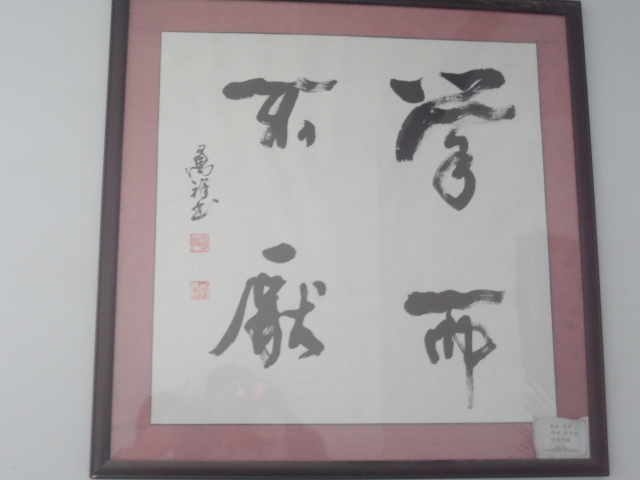 學而
不厭
萬祥書